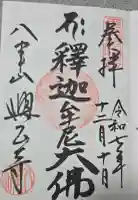 奉拝
令和七年
十二月十日
釋迦牟尼大佛
八事山 興正寺